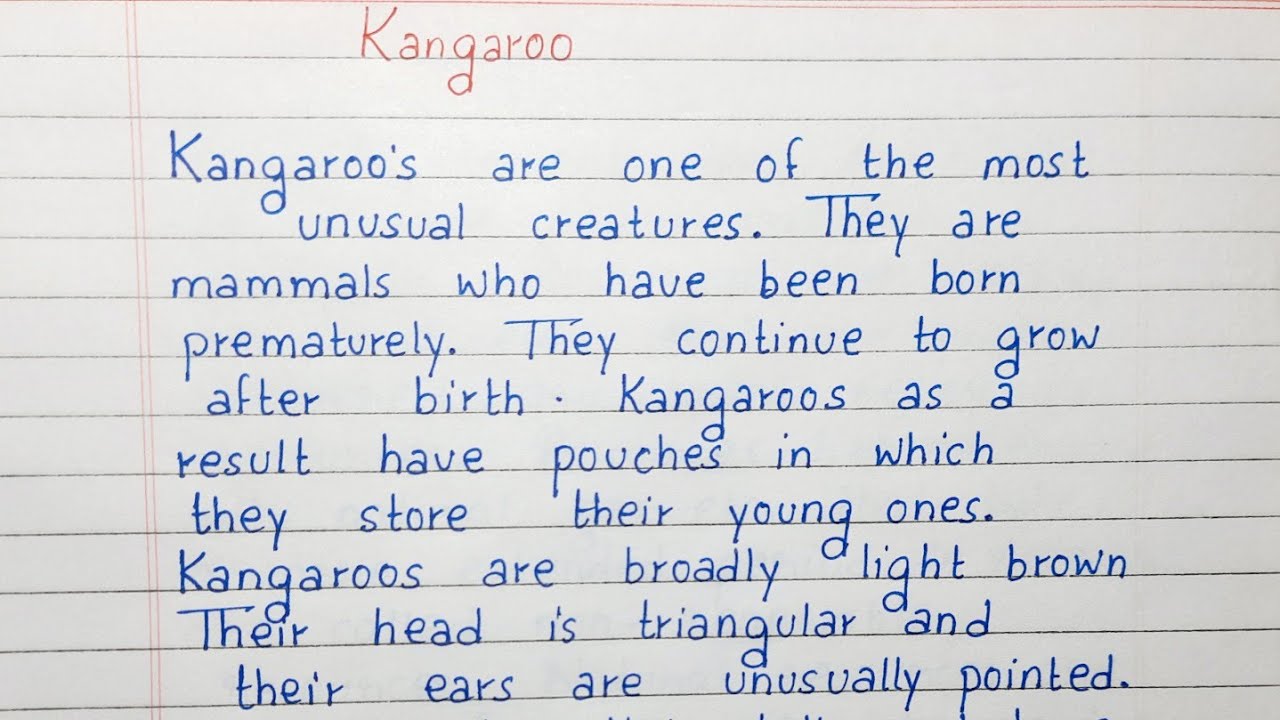 Kangaroo
Kangaroo's are one of the most
unusual creatures. They are
mammals who have been born
prematurely. They continue to grow
after birth. Kangaroos as a
result have pouches in which
they store their young ones.
Kangaroos are broadly light brown
Their head is triangular and
their ears are unusually pointed.